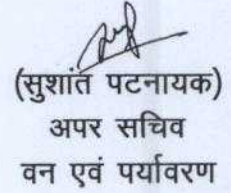 (सुशांत पटनायक)
अपर सचिव
वन एवं पर्यावरण